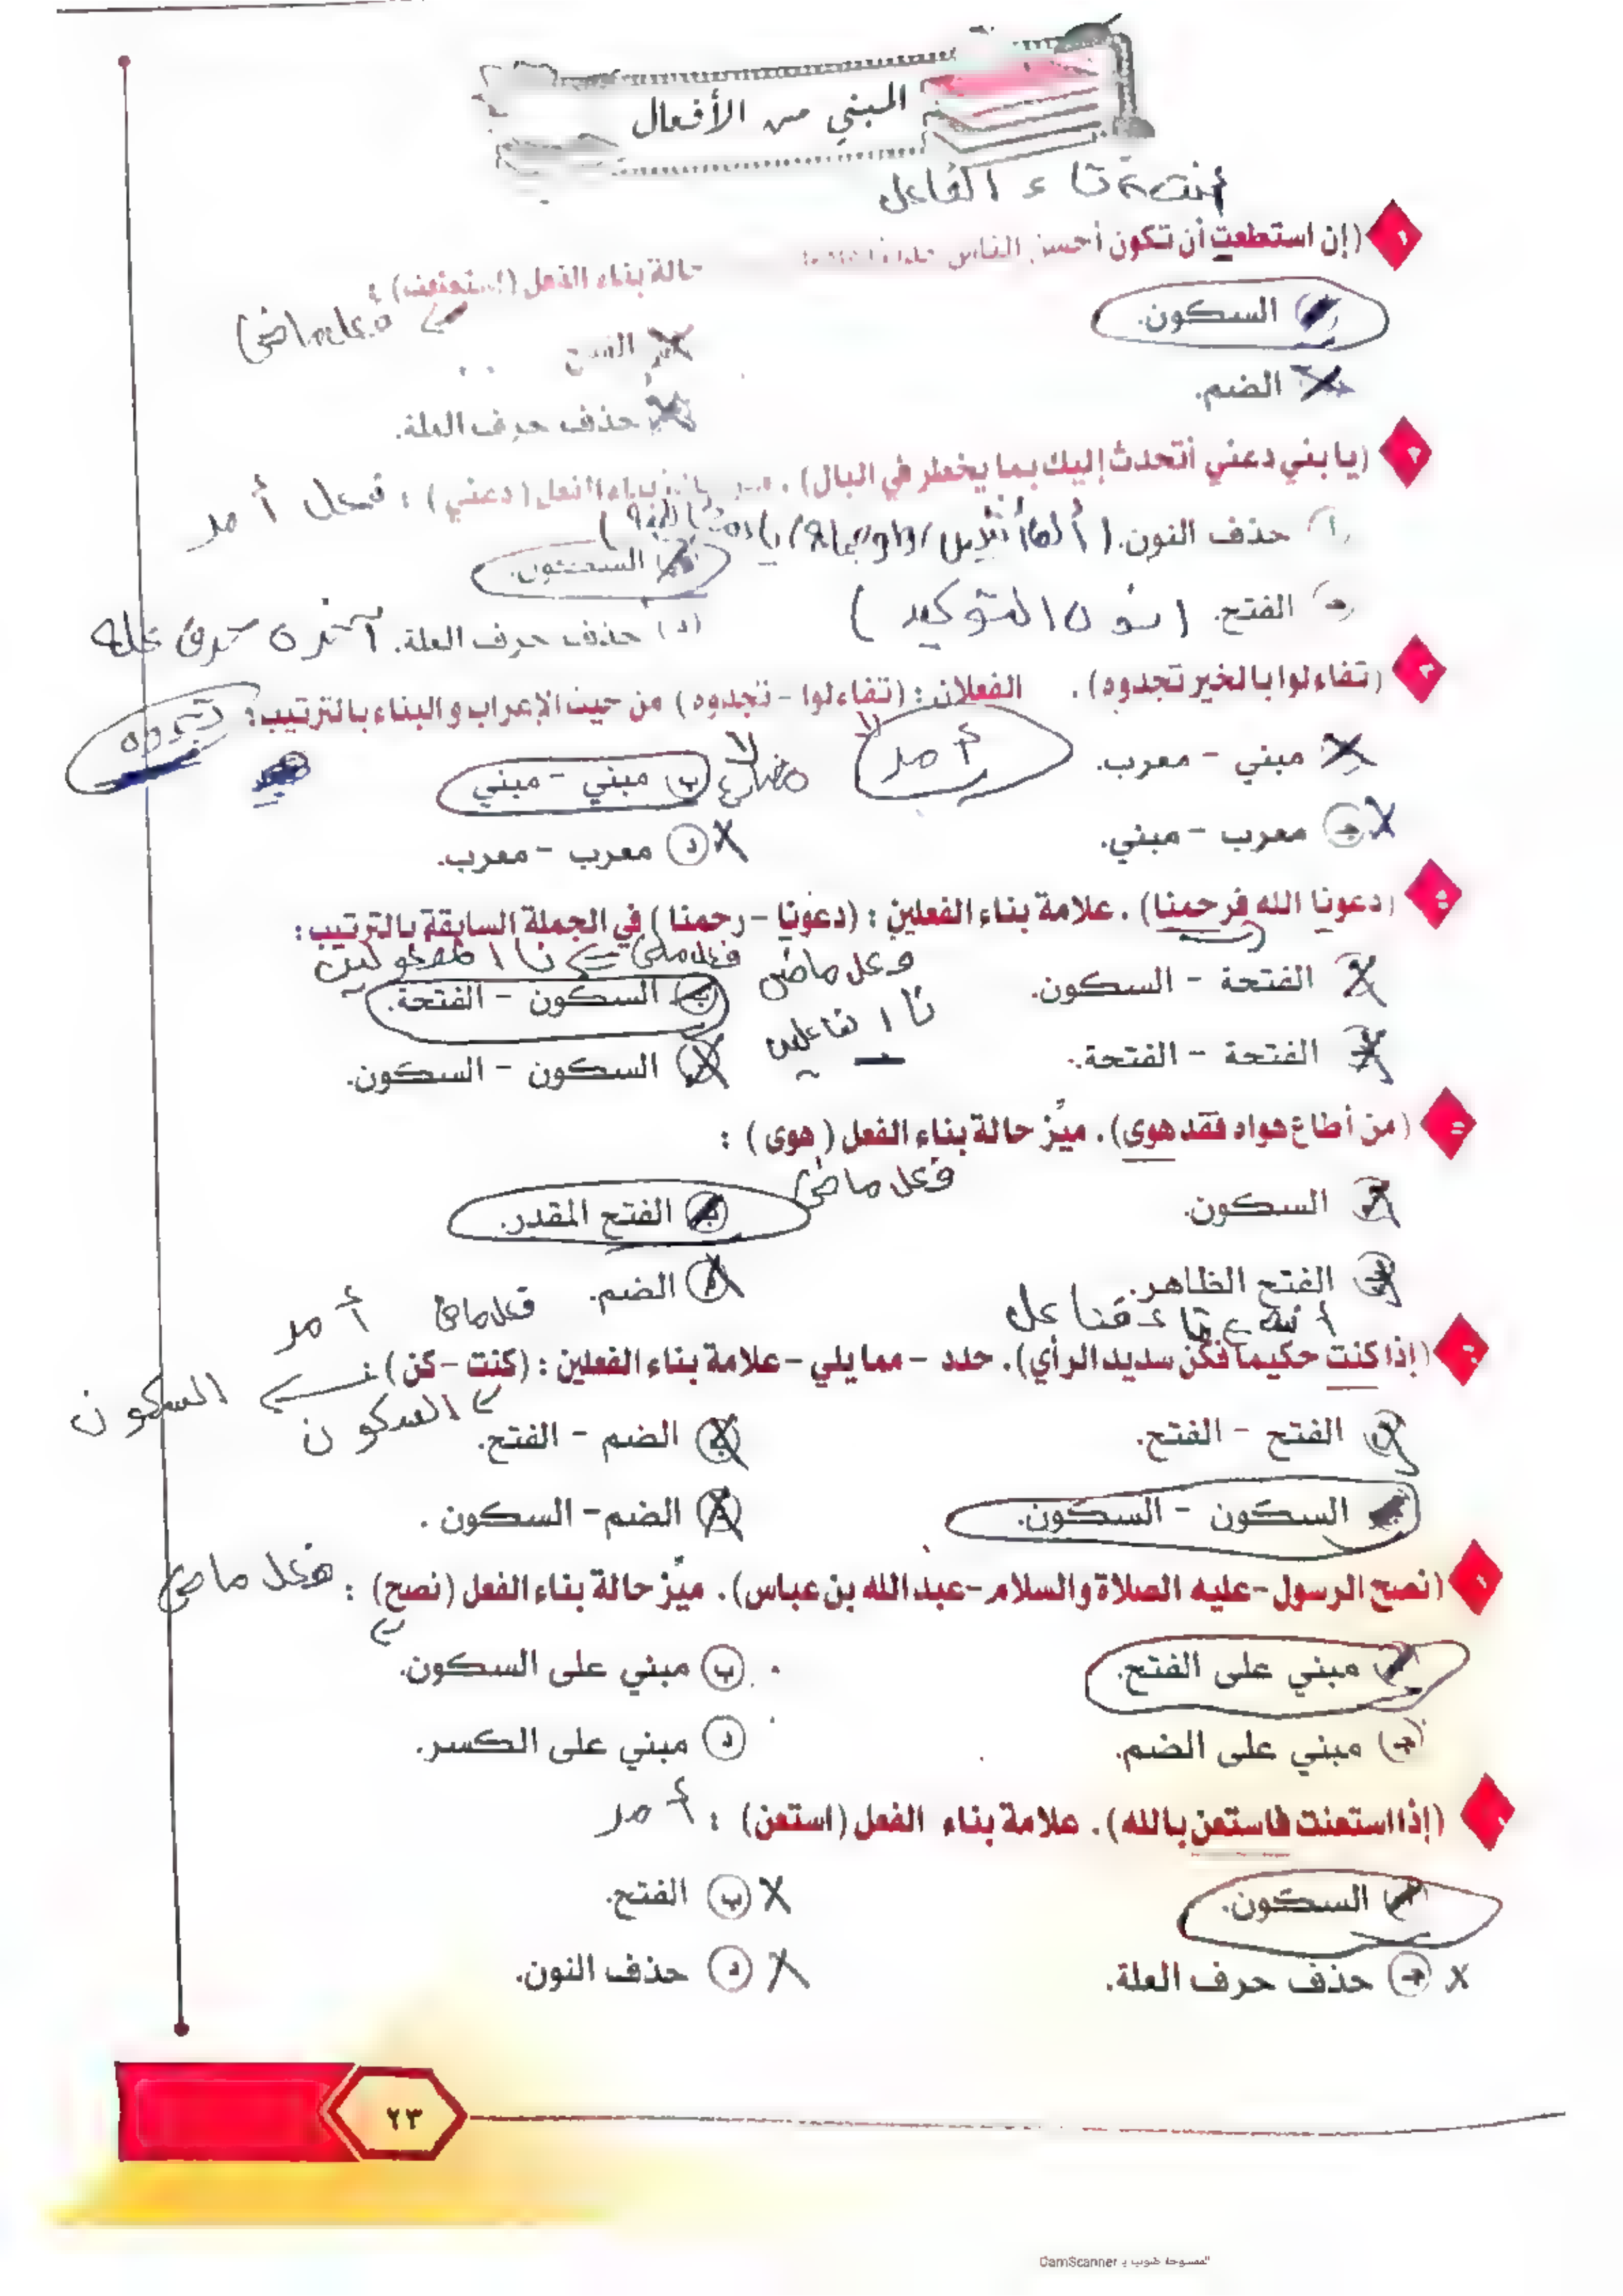 المبني من الأفعال
أنت ⇐ تاء الفاعل
١ (إن استطعت أن تكون أحسن الناس
حالة بناء الفعل (استطعت) :
فعل ماضي
السكون.
الفتح
الضم.
حذف حرف العلة.
(يا بني دعني أتحدث إليك بما يخطر في البال) . بناء الفعل (دعني) : فعل أمر
أ حذف النون. (ألف اثنين / واو جماعة / ياء
السكون.
ج الفتح. (نون التوكيد)
(د) حذف حرف العلة. آخره حرف علة
(تفاءلوا بالخير تجدوه) . الفعلان : (تفاءلوا - تجدوه) من حيث الإعراب والبناء بالترتيب: تجدوه
مبني - معرب. أمر
ب مبني - مبني مضارع
ج معرب - مبني.
د معرب - معرب.
(دعونا الله فرحمنا) . علامة بناء الفعلين : (دعونا - رحمنا) في الجملة السابقة بالترتيب:
فعل ماضي
الفتحة - السكون.
ب السكون - الفتحة.
نا الفاعلين
الفتحة - الفتحة.
السكون - السكون.
(من أطاع هواه فقد هوى) . ميّز حالة بناء الفعل (هوى) :
فعل ماضي
السكون.
ب الفتح المقدر.
الفتح الظاهر.
الضم. فعل ماضي أمر
(إذا كنت حكيما فكن سديد الرأي) . حدد - مما يلي - علامة بناء الفعلين : (كنت - كن) :
السكون
السكون
الفتح - الفتح.
الضم - الفتح.
السكون - السكون.
الضم - السكون .
(نصح الرسول - عليه الصلاة والسلام - عبد الله بن عباس) . ميّز حالة بناء الفعل (نصح) : فعل ماضي
مبني على الفتح.
ب مبني على السكون.
ج مبني على الضم.
د مبني على الكسر.
(إذا استعنت فاستعن بالله) . علامة بناء الفعل (استعن) : أمر
السكون.
ب الفتح.
ج حذف حرف العلة.
د حذف النون.
٢٣
الممسوحة ضوئيا بـ CamScanner